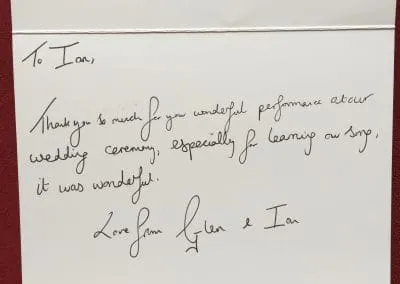 To Ian,
Thank you so much for your wonderful performance at our
wedding ceremony, especially for learning our song,
it was wonderful.
Love from Glen & Ian